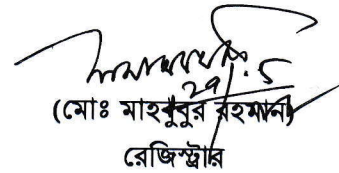 ২৭/৫
(মোঃ মাহবুবুর রহমান)
রেজিস্ট্রার